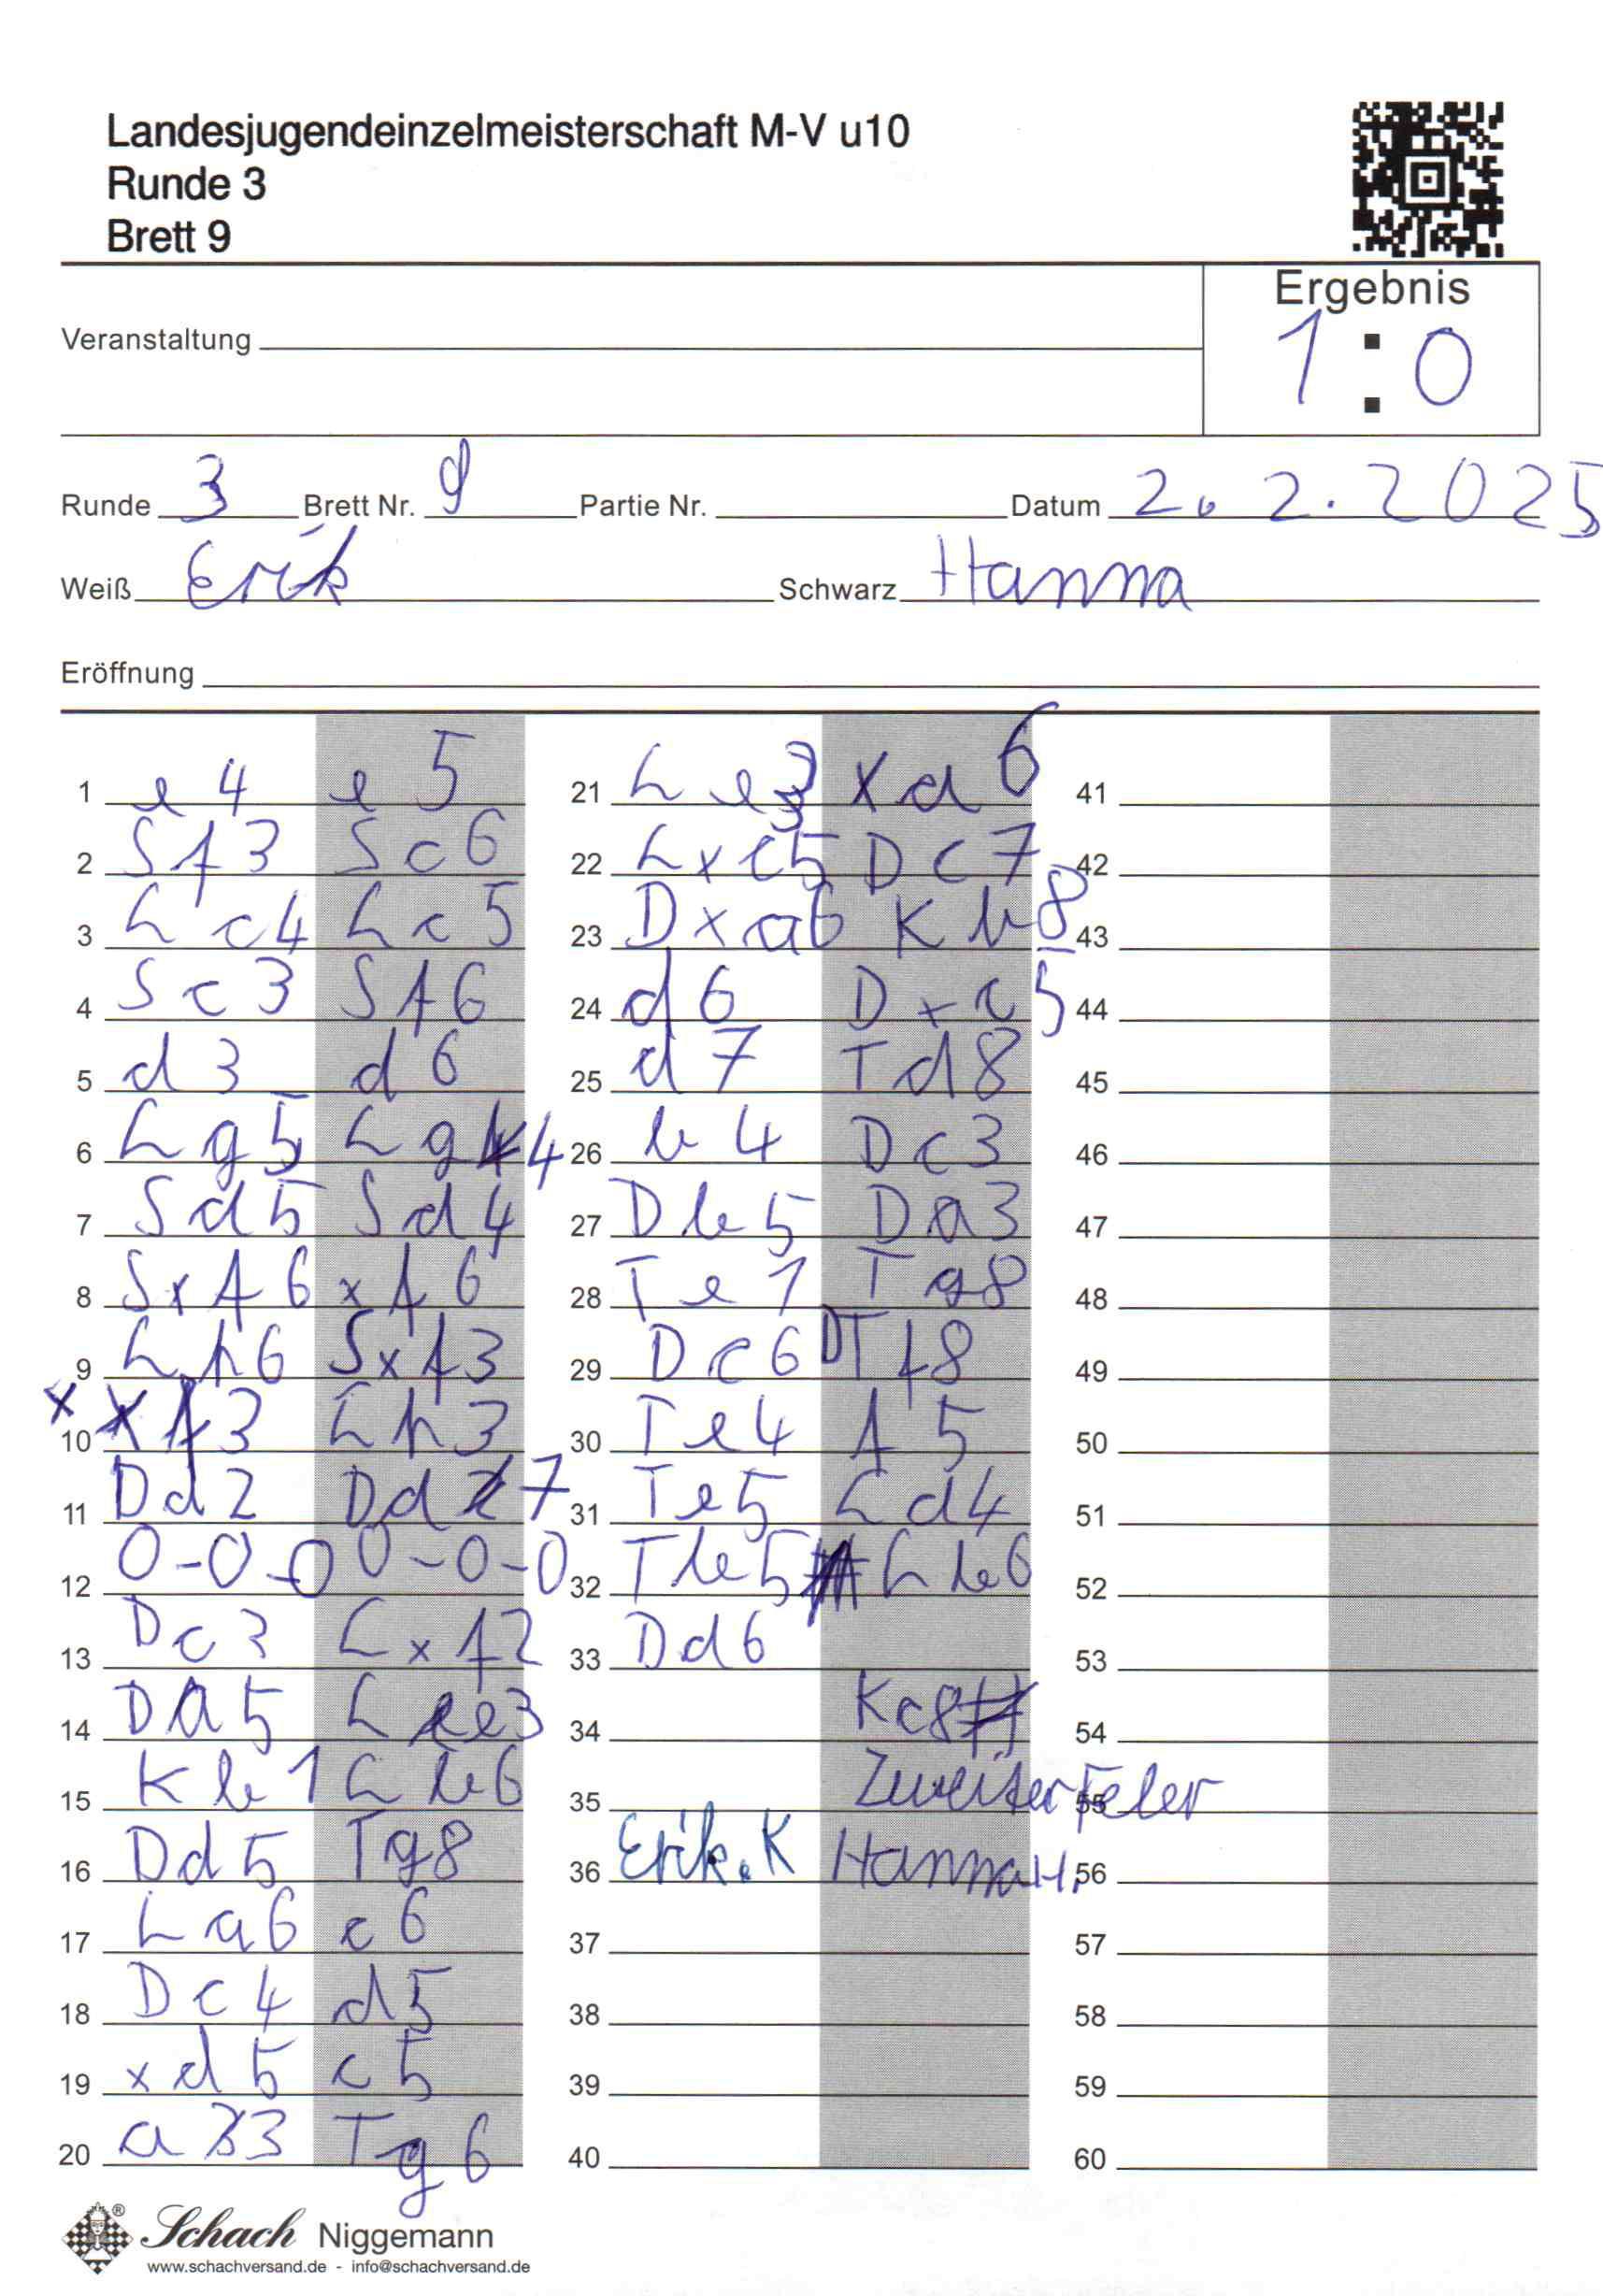 Landesjugendeinzelmeisterschaft M-V u10
Runde 3
Brett 9
Ergebnis
1 : 0
Veranstaltung
Runde 3 Brett Nr. 9 Partie Nr. Datum 2. 2. 2025
Weiß Erik Schwarz Hanna
Eröffnung
1 e4 e5
2 Sf3 Sc6
3 Lc4 Lc5
4 Sc3 Sf6
5 d3 d6
6 Lg5 Lg4
7 Sd5 Sd4
8 Sxf6 xf6
9 Lh6 Sxf3
10 xf3 Lh3
11 Dd2 Dd7
12 0-0-0 0-0-0
13 Dc3 Lxf2
14 Da5 Le3
15 Kb1 Lb6
16 Dd5 Tg8
17 La6 c6
18 Dc4 d5
19 xd5 c5
20 a3 Tg6
21 Le3 xa6
22 Lxc5 Dc7
23 Dxa6 Kb8
24 d6 Dxc5
25 d7 Td8
26 b4 Dc3
27 Db5 Da3
28 Te1 Tg8
29 Dc6 Tf8
30 Te4 f5
31 Te5 Ld4
32 Tb5 Lb6
33 Dd6
34 Kc8#
35 Zweiter Feler
36 Erik.K Hanna H.
37
38
39
40
41
42
43
44
45
46
47
48
49
50
51
52
53
54
55
56
57
58
59
60
Schach Niggemann
www.schachversand.de - info@schachversand.de